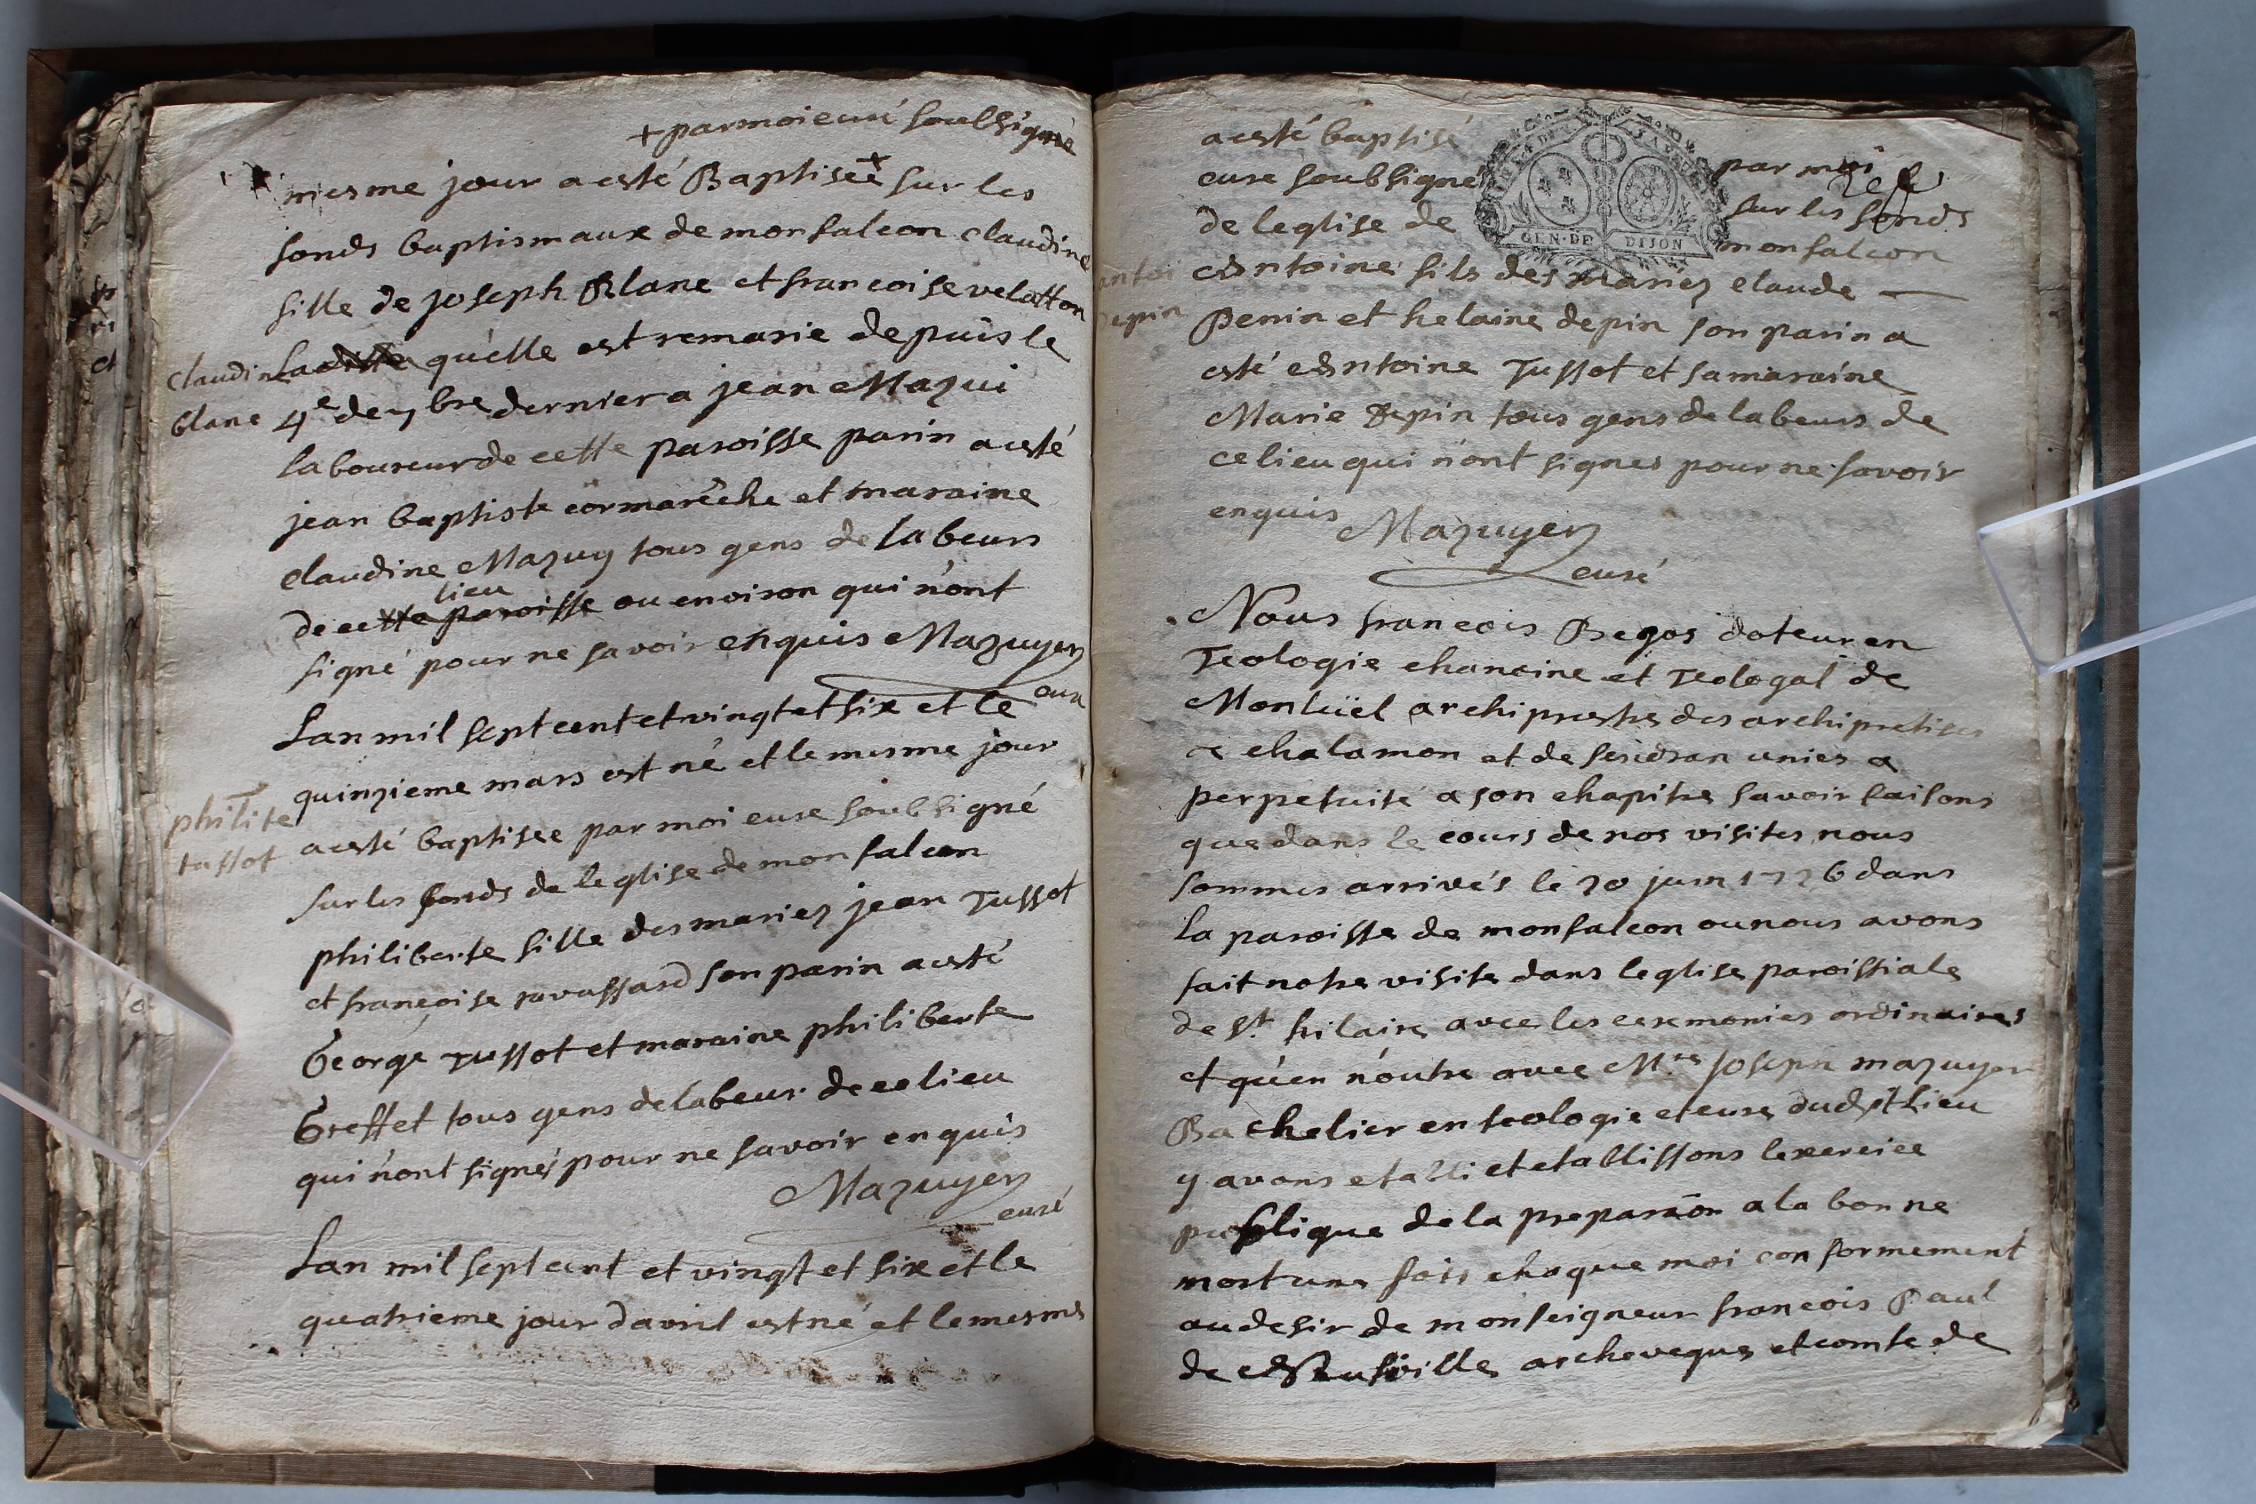 + par moi curé soubsigné
mesme jour a esté Baptisée + sur les
fonds baptismaux de monfalcon claudine
fille de joseph Blanc et francoise velatton
claudine
blanc
Laditte quelle est remarie depuis le
4e de 7bre dernier a jean Mazui
laboureur de cette paroisse parin a esté
jean baptiste cormarêche et maraine
claudine Mazuy tous gens de labeurs
lieu
de cette paroisse ou environ qui n'ont
signé pour ne savoir enquis Mazuyer
curé
Lan mil sept cent et vingt et six et le
quinzieme mars est né et le mesme jour
philite
tussot
a esté baptisee par moi cure soubsigné
sur les fonds de leglise de monfalcon
philiberte fille des mariez jean Tussot
et françoise ravassard son parin a esté
George Tussot et maraine philiberte
Greffet tous gens de labeur de ce lieu
qui n'ont signés pour ne savoir enquis
Mazuyer
curé
Lan mil sept cent et vingt et six et le
quatrieme jour davril est né et le mesme
a esté baptisé par moi
cure soubsigné sur les fonds
de leglise de monfalcon
GEN·DE DIJON
antoi
depin
Antoine fils des mariez claude
Perrin et helaine depin son parin a
esté Antoine Tussot et sa maraine
Marie Depin tous gens de labeurs de
ce lieu qui n'ont signes pour ne savoir
enquis Mazuyer
curé
Nous francois Begos doteur en
Teologie chanoine et Teologal de
Monluël archiprestre des archipretises
de chalamon et de unies a
perpetuité a son chapitre savoir faisons
que dans le cours de nos visites nous
sommes arrivés le 20 juin 1726 dans
la paroisse de monfalcon ou nous avons
fait notre visite dans leglise paroissiale
de St hilaire avec les ceremonies ordinaires
et qu'en n'outre avec Mre Joseph mazuyer
Bachelier en teologie et cure dudit lieu
y avons etabli et etablissons lexercice
publique de la preparãon a la bonne
mort une fois chaque moi conformement
au desir de monseigneur francois Paul
de Neufville archeveque et comte de